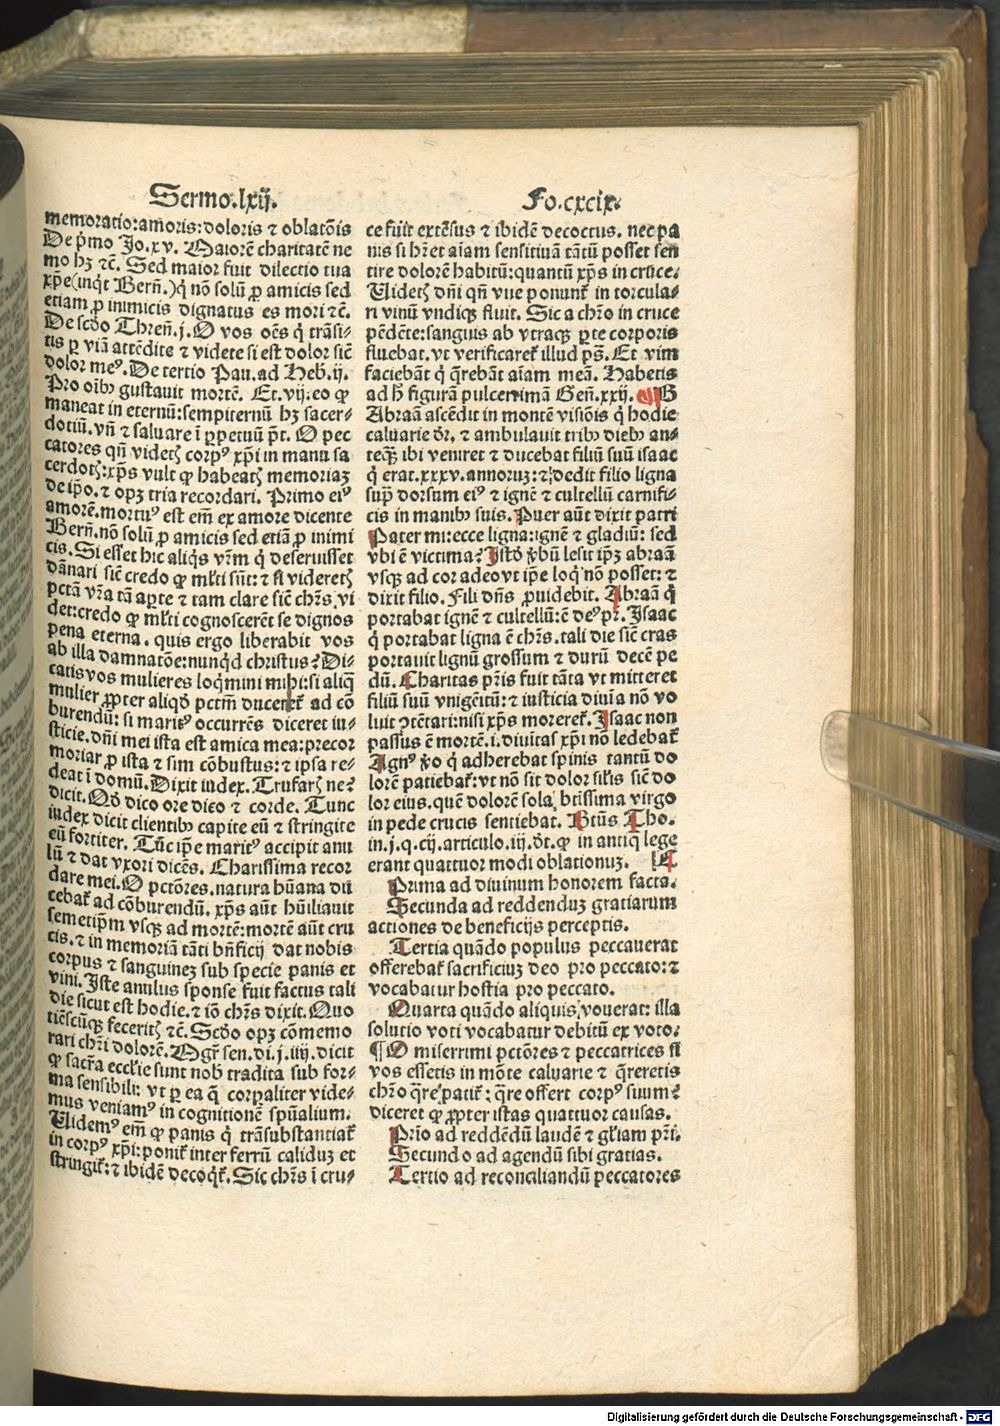 Sermo.lxij.
Fo.cxcix.
memoratio:amoris:doloris ⁊ oblatōis
De pͥmo Jo.xv. Maiorē charitatē ne
mo hꝫ ⁊c̄. Sed maior fuit dilectio tua
xp̄e(inqͥt Bern̄.)qͥ nō solū ꝓ amicis sed
etiam ꝓ inimicis dignatus es mori ⁊c̄.
De scd̄o Thren̄.j.O vos oēs qͥ trāsi-
tis ꝑ viā attēdite ⁊ videte si est dolor sic̄
dolor meꝰ.De tertio Pau.ad Heb.ij.
Pro oibꝰ gustauit mortē. Et.vij:eo ꝙ
maneat in eternū:sempiternū hꝫ sacer-
dotiū.vn̄ ⁊ saluare ī ꝑpetuū pt̄. O pec
catores qn̄ videtꝭ corpꝰ xp̄i in manu sa
cerdotꝭ:xp̄s vult ꝙ habeatꝭ memoriaꝫ
de ip̄o.⁊ opꝫ tria recordari. Primo eiꝰ
amorē.mortuꝰ est em̄ ex amore dicente
Bern̄.nō solū ꝓ amicis sed etiā ꝓ inimi
cis. Si esset hic aliqͥs vr̄m qͥ deseruisset
dānari sic̄ credo ꝙ ml̄ti sūt:⁊ si videretꝭ
pctā vr̄a tā aꝑte ⁊ tam clare sic̄ chr̄s.vi
det:credo ꝙ ml̄ti cognoscerēt se dignos
pena eterna. quis ergo liberabit vos
ab illa damnatōe:nunqͥd christus? Di-
catis vos mulieres loqͥmini mihi:si aliqͣ
mulier ꝓpter aliqd̄ pctm̄ duceret̄ ad cō
burendū: si maritꝰ occurrēs diceret iu-
sticie.dn̄i mei ista est amica mea:precor
moriar ꝓ ista ⁊ sim cōbustus:⁊ ipsa re-
deat ī domū.Dixit iudex. Trufarꝭ ne?
dicit.Qd̄ dico ore dico ⁊ corde. Tunc
iudex dicit clientibꝰ capite eū ⁊ stringite
eū fortiter. Tūc ip̄e maritꝰ accipit anu
lū ⁊ dat vxori dicēs. Charissima recor
dare mei.O pctōres.natura hūana du
cebat̄ ad cōburendū. xp̄s aūt hūiliauit
semetip̄m vsqꝫ ad mortē:mortē aūt cru
cis.⁊ in memoriā tāti bn̄ficij dat nobis
corpus ⁊ sanguineꝫ sub specie panis et
vini. Iste anulus sponse fuit factus tali
die sicut est hodie.⁊ iō chr̄s dixit.Quo
tiēscūqꝫ feceritꝭ ⁊c̄. Scd̄o opꝫ cōmemo
rari chr̄i dolorē.Mgr̄ sen.di.j.iiij.dicit
ꝙ sacr̄a eccl̄ie sunt nob̄ tradita sub for-
ma sensibili: vt ꝑ ea qͣ corꝑaliter vide-
mus veniamꝰ in cognitionē spūalium.
Uidemꝰ em̄ ꝙ panis qͥ trāsubstantiat̄
in corpꝰ xp̄i:ponit̄ inter ferrū caliduꝫ et
stringit̄:⁊ ibidē decoqͥt̄. Sic chr̄s ī cru-
ce fuit extēsus ⁊ ibidē decoctus. nec pa
nis si hr̄et aīam sensitiuā tātū posset sen
tire dolorē habitū:quantū xp̄s in cruce.
Uidetꝭ dn̄i qn̄ vue ponunt̄ in torcula-
ri vinū vndiqꝫ fluit. Sic a chr̄o in cruce
pēdēte:sanguis ab vtraqꝫ ꝑte corporis
fluebat.vt verificaret̄ illud ps̄. Et vim
faciebāt qͥ qͥrebāt aīam meā. Habetis
ad h̄ figurā pulcerrimā Gen̄.xxij. ¶ B
Abraā ascēdit in montē visiōis qͥ hodie
caluarie dr̄. ⁊ ambulauit tribꝰ diebꝰ an-
teqͣꝫ ibi veniret ⁊ ducebat filiū suū isaac
qͥ erat.xxxv.annoruꝫ:⁊ dedit filio ligna
suꝑ dorsum eiꝰ ⁊ ignē ⁊ cultellū carnifi-
cis in manibꝰ suis. Puer aūt dixit patri
Pater mi:ecce ligna:ignē ⁊ gladiū: sed
vbi ē victima? Istd̄ v̄bū lesit ip̄ꝫ abraā
vsqꝫ ad cor adeo vt ip̄e loqͥ nō posset: ⁊
dixit filio. Fili dn̄s ꝓuidebit. Abraā qͥ
portabat ignē ⁊ cultellū:ē deꝰ pr̄. Isaac
qͥ portabat ligna ē chr̄s.tali die sic̄ cras
portauit lignū grossum ⁊ durū decē pe
dū. Charitas pr̄is fuit tāta vt mitteret
filiū suū vnigēitū:⁊ iusticia diuīa nō vo
luit ↄtētari:nisi xp̄s moreret̄. Isaac non
passus ē mortē.i.diuītas xp̄i nō ledebat̄
Agnꝰ v̄o qͥ adherebat spinis tantū do
lorē patiebat̄:vt nō sit dolor sil̄is sic̄ do
lor eius.quē dolorē sola btīssima virgo
in pede crucis sentiebat. Btūs Tho.
in.j.q.cij.articulo.iij.dt̄.ꝙ in antiqͣ lege
erant quattuor modi oblationuꝫ. C
Prima ad diuinum honorem facta.
Secunda ad reddenduꝫ gratiarum
actiones de beneficijs perceptis.
Tertia quādo populus peccauerat
offerebat̄ sacrificiuꝫ deo pro peccato:⁊
vocabatur hostia pro peccato.
Quarta quādo aliquis vouerat: illa
solutio voti vocabatur debitū ex voto.
¶O miserrimi pctōres ⁊ peccatrices si
vos essetis in mōte caluarie ⁊ qͥreretis
chr̄o qͣre patit̄: qͣre offert corpꝰ suum?
diceret ꝙ ꝓpter istas quattuor causas.
Prīo ad reddēdū laudē ⁊ gl̄iam pr̄i.
Secundo ad agendū sibi gratias.
Tertio ad reconciliandū peccatores
Digitalisierung gefördert durch die Deutsche Forschungsgemeinschaft - DFG